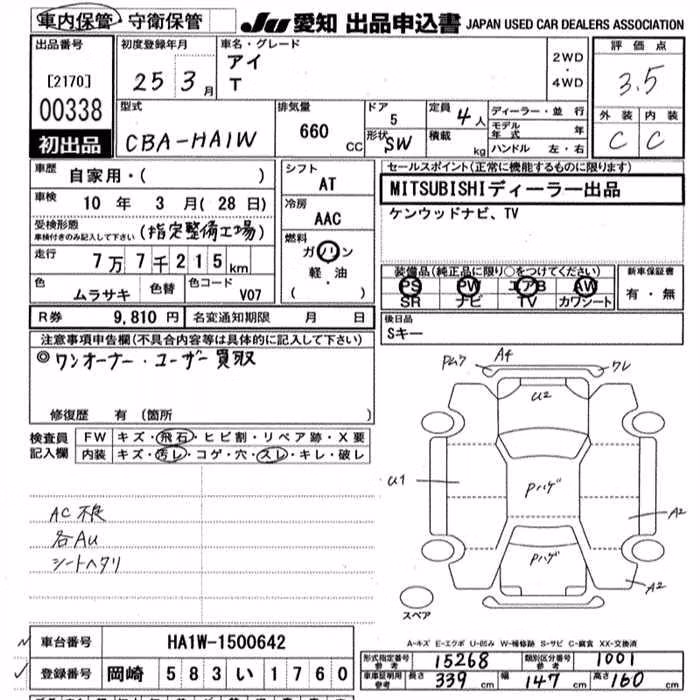 車内保管・守衛保管
JU 愛知 出品申込書 JAPAN USED CAR DEALERS ASSOCIATION
出品番号
[2170]
00338
初出品
初度登録年月
25 3月
車名・グレード
アイ
T
2WD
・
4WD
評価点
3.5
外装 内装
C C
型式
CBA-HA1W
排気量
660 CC
ドア
5
形状
SW
定員 4人
積載 kg
ディーラー・並行
モデル年式 年
ハンドル 左・右
車歴
自家用・( )
車検
10 年 3 月( 28 日)
受検形態
車検付きのみ記入して下さい
(指定整備工場)
走行
7万7千215km
色
ムラサキ
色替
色コード
V07
シフト
AT
冷房
AAC
燃料
ガソリン
軽・油
( )
セールスポイント(正常に機能するものに限ります)
MITSUBISHIディーラー出品
ケンウッドナビ、TV
装備品(純正品に限り○をつけてください)
PS PW エアB AW
SR ナビ TV カワシート
新車保証書
有・無
R券 9,810 円
名変通知期限 月 日
後日品
Sキー
注意事項申告欄(不具合内容等は具体的に記入して下さい)
◎ワンオーナー・ユーザー買取
修復歴 有 (箇所 )
検査員
記入欄
FW キズ・飛石・ヒビ割・リペア跡・X要
内装 キズ・汚レ・コゲ・穴・スレ・キレ・破レ
AC不良
各AU
シートヘタリ
A4
ワレ
U2
U1
Pハゲ
A2
Pハゲ
A2
スペア
A-キズ E-エクボ U-凹み W-補修跡 S-サビ C-腐食 XX-交換済
車台番号 HA1W-1500642
登録番号 岡崎 583 い 1760
形式指定番号
参考
15268
類別区分番号
参考
1001
車庫証明用
参考
長さ 339 cm 幅 147 cm 高さ 160 cm